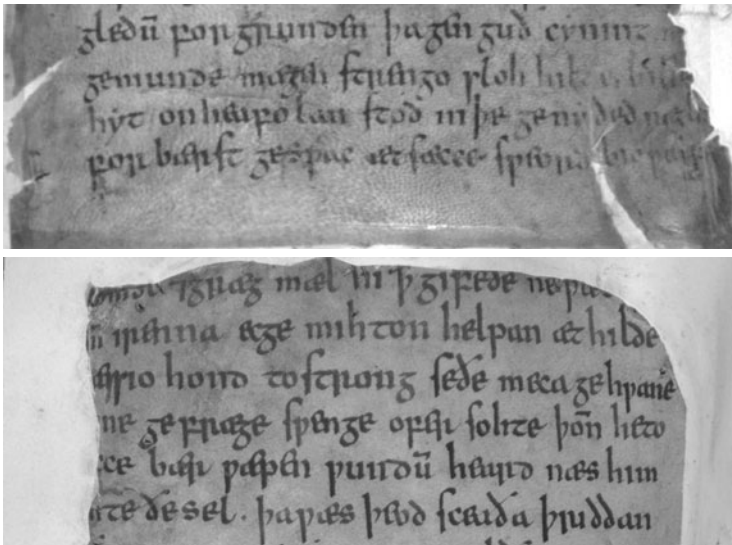 gledū forgrunden þa gen guð cyning
gemunde mægen strengo sloh hilde bille
hyt onheafolan stod niþe genyded nægl
for bærst geswac æt sæcce sweord biowulf
gomol ⁊grægmæl him ꝥ gifeðe ne wæs
irenna ecge mihton helpan æt hilde
sio hond tostrong seðe meca gehwane
ne gefræge swenge ofer sohte þoñ heto
cce bær wæpen wundū heard næs him
hte ðe sel. þa wæs þeod sceaða þriddan